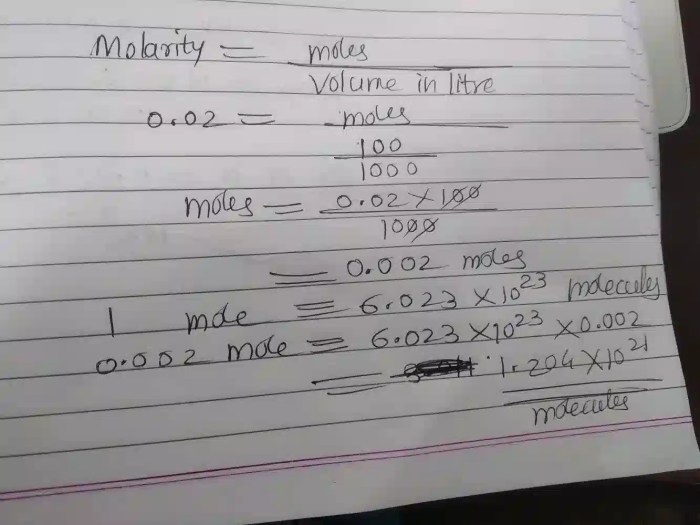 Molarity = moles
Volume in litre
0.02 = moles
100
1000
moles = 0.02 × 100
1000
= 0.002 moles
1 mole = 6.023 × 10²³ molecules
0.002 mole = 6.023 × 10²³ × 0.002
= 1.204 × 10²¹
molecules